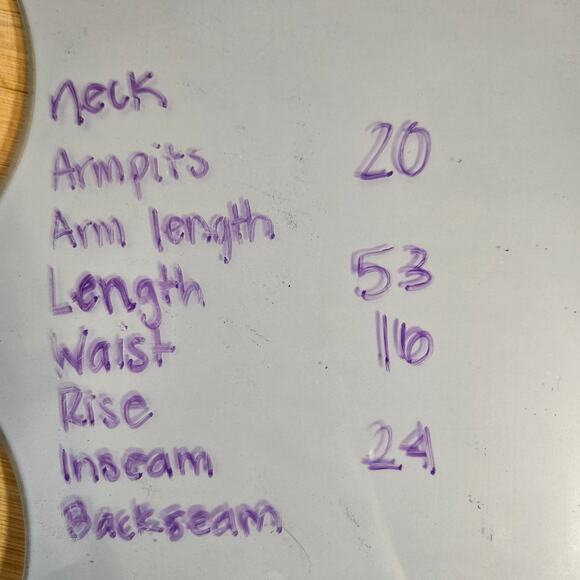 neck
Armpits 20
Arm length
Length 53
Waist 16
Rise
Inseam 24
Backseam